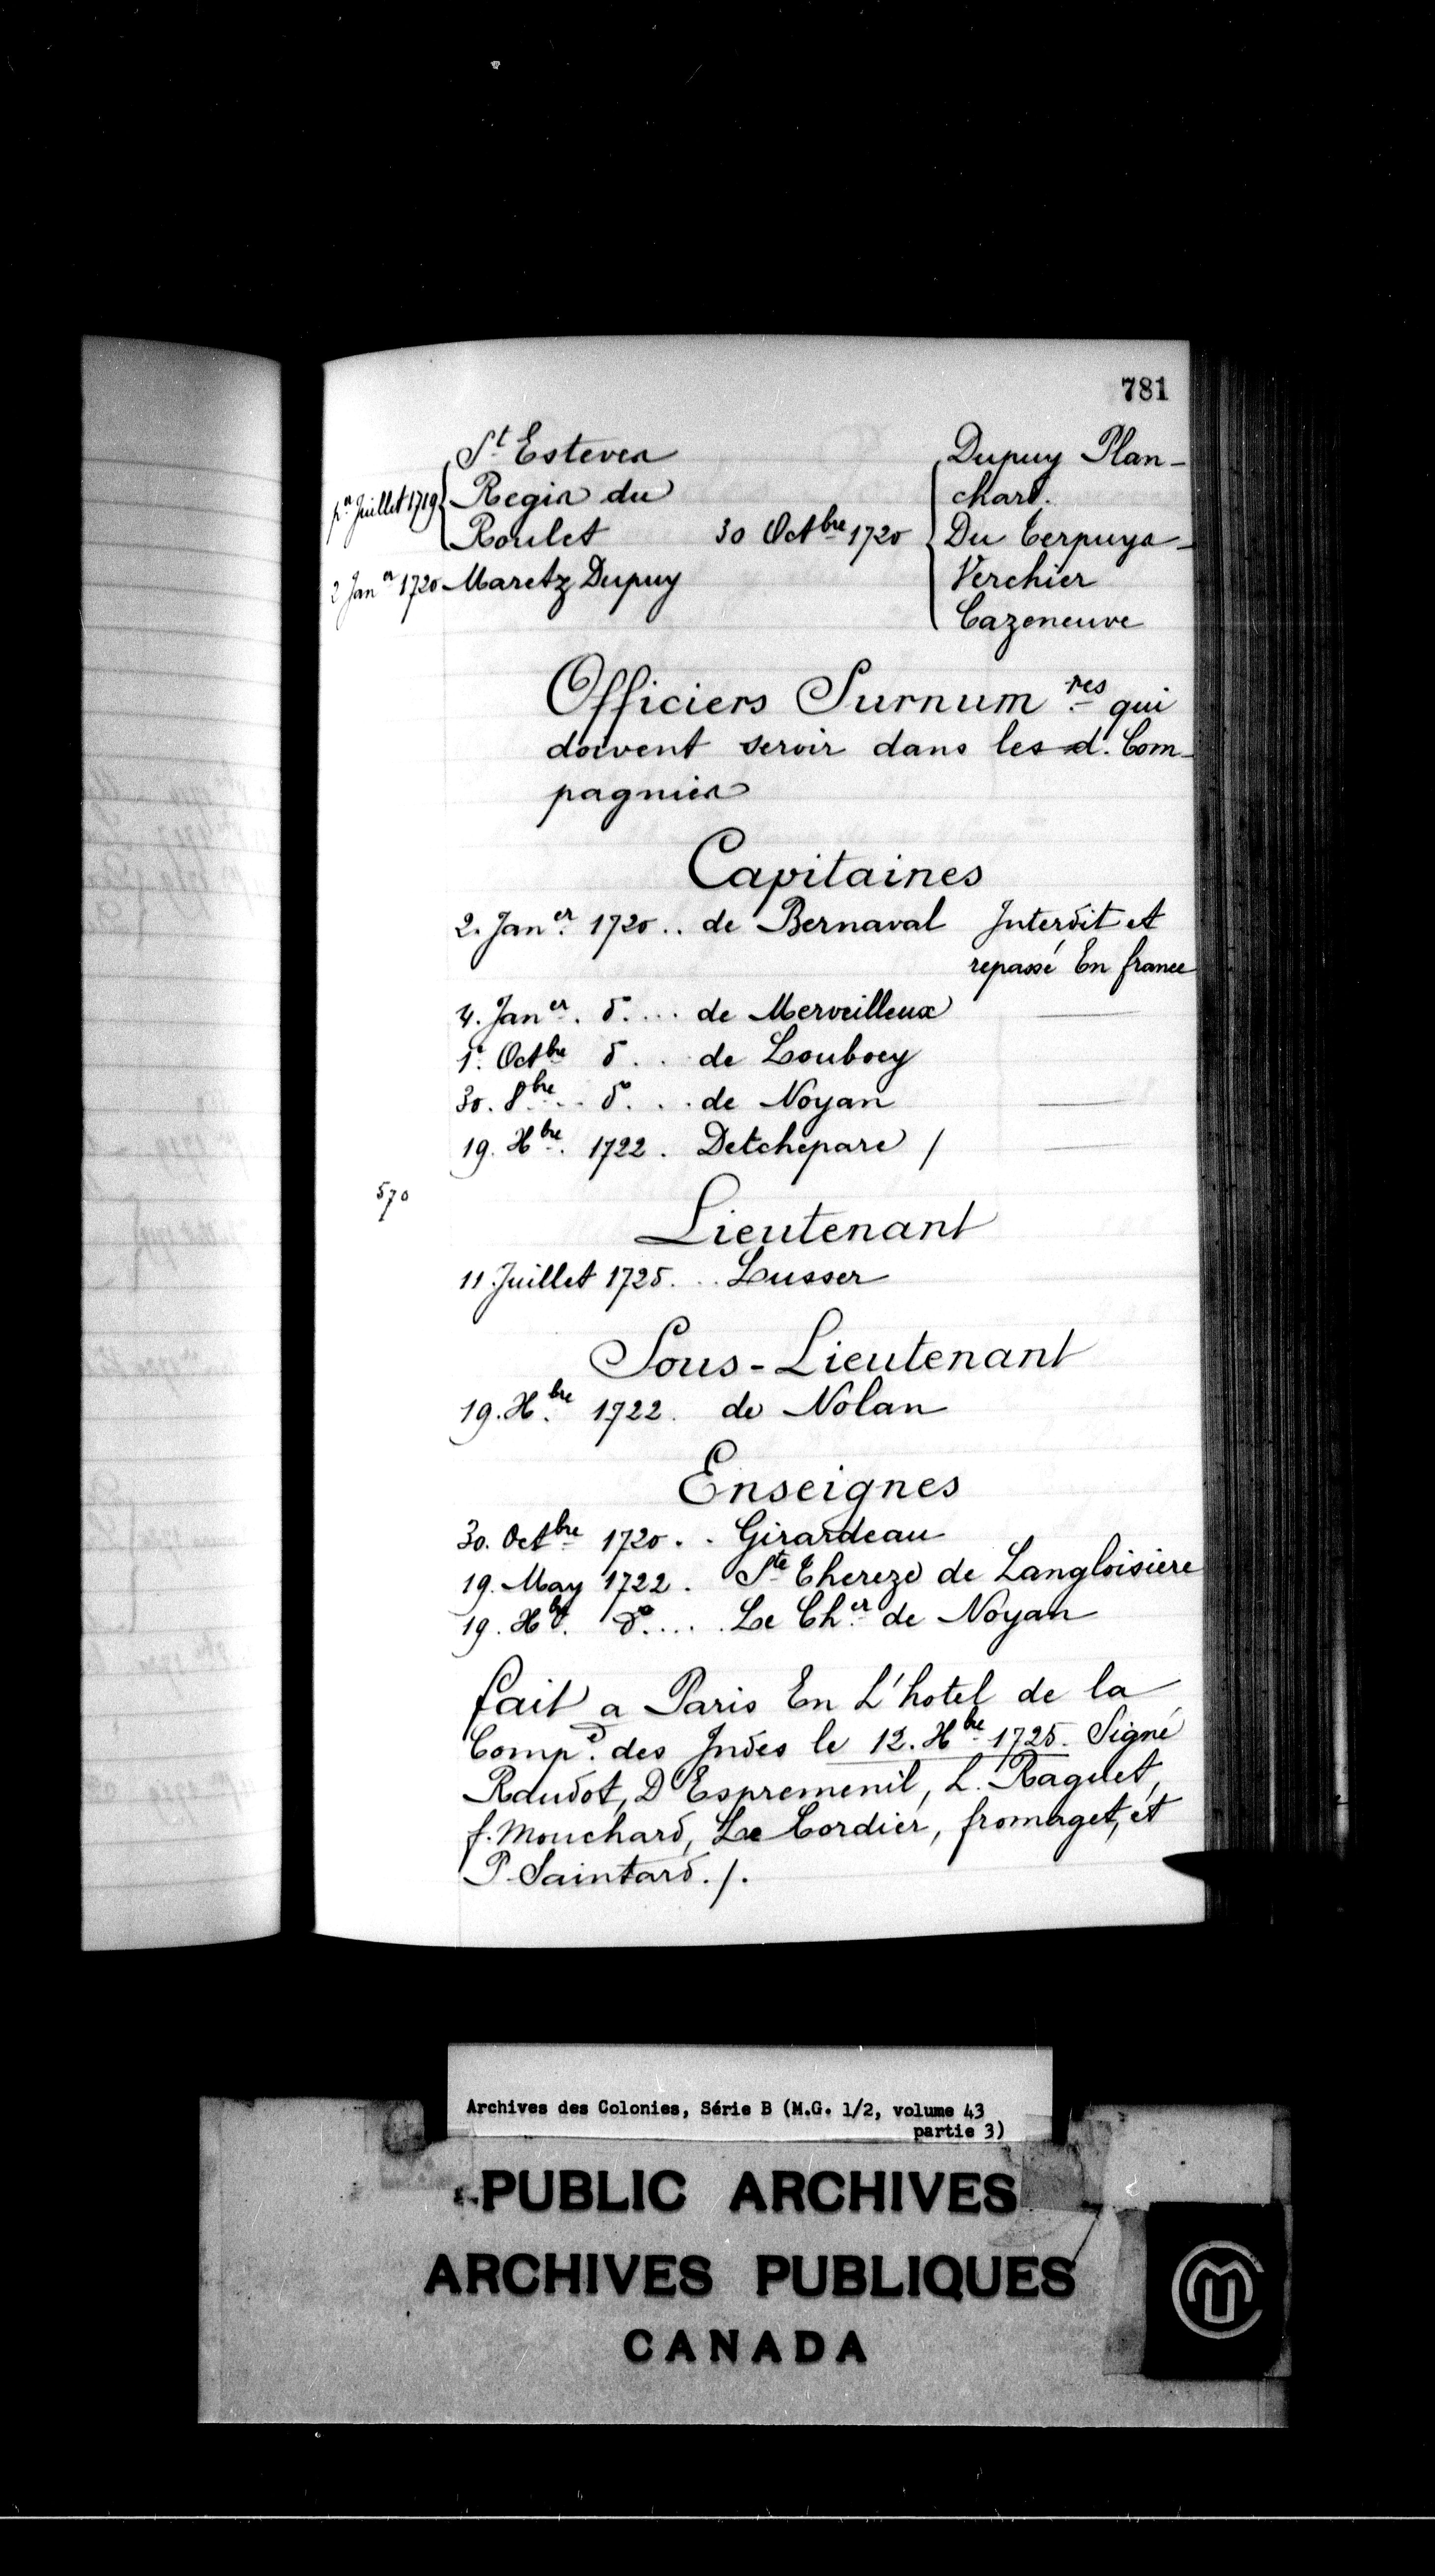 781
St Esteven Dupuy Plan-
pr Juillet 1719 Regis du chard.
Roulet 30 Octbre 1720 Du Terpuys
2 Janer 1720 Maretz Dupuy Verchier
Cazeneuve
Officiers Surnumres qui
doivent servir dans les d. Com-
pagnies
Capitaines
2. Janer 1720 .. de Bernaval Interdit et
repassé En france
4. Janer. do. ... de Merveilleux
1r. Octbre do .. de Louboey
30. 8bre .. do. .. de Noyan
19. Xbre. 1722. Detchepare /
570
Lieutenant
11. Juillet 1725. .. Lusser
Sous-Lieutenant
19. Xbre 1722. de Nolan
Enseignes
30. Octbre 1720. . Girardeau
19. May 1722. Ste Thereze de Langloisiere
19. Xbre. do. ... Le Cher de Noyan
fait a Paris En L'hotel de la
Compe. des Indes le 12. Xbre 1725. Signé
Raudot, D'Espremenil, L. Raguet,
f. Mouchard, Le Cordier, fromaget, et
P. Saintard. /.
Archives des Colonies, Série B (M.G. 1/2, volume 43
partie 3)
PUBLIC ARCHIVES
ARCHIVES PUBLIQUES
CANADA